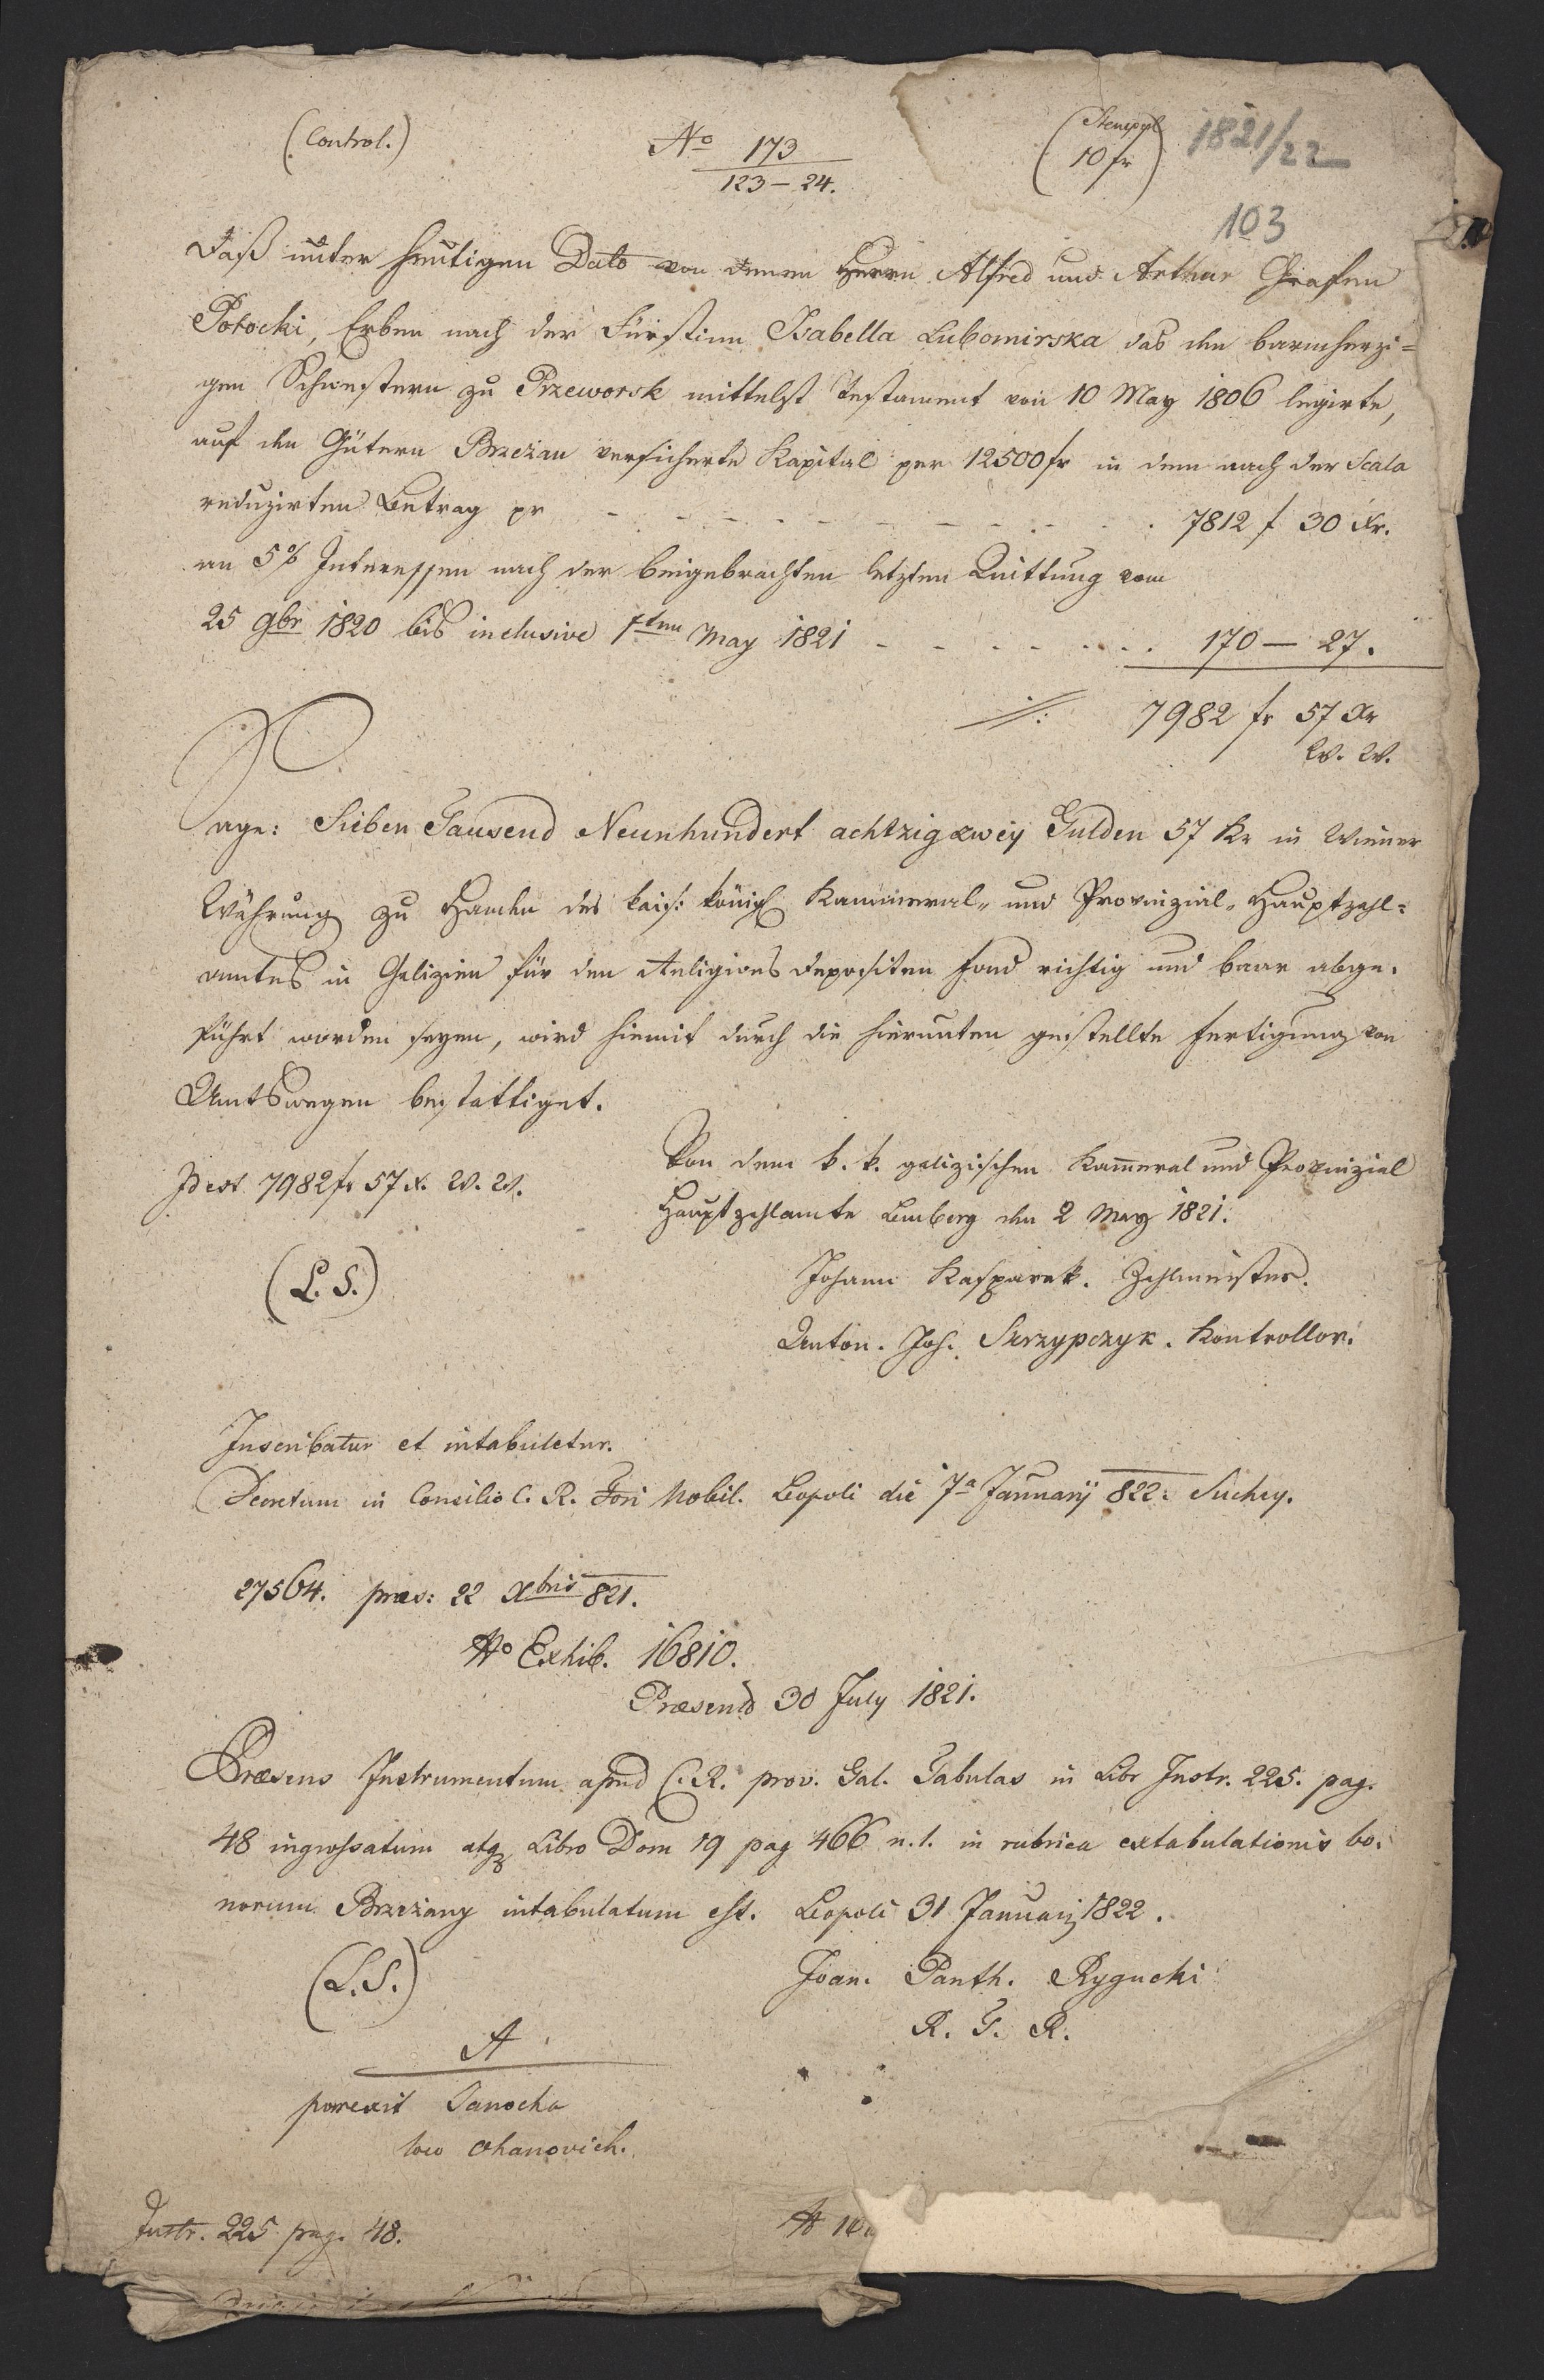 (Control.)
No 173
123 – 24.
(Stempel
10 fr)
1821/22
103
Daß unter heutigen Dato von denen Herrn Alfred und Arthur Grafen
Potocki, Erben nach der Fürstinn Isabella Lubomirska das den barmherzi=
gen Schwestern zu Przeworsk mittelst Testament von 10 May 1806 legirte,
auf den Gütern Brzeżan versicherte Kapital per 12500 fr in dem nach der Scala
reduzirten Betrag pr - - - - - - - - - - 7812 f 30 Xr.
an 5% Interessen nach der beigebrachten letzten Quittung vom
25 9br 1820 bis inclusive 1ten May 1821 - - - - - - - 170 — 27.
7982 fr 57 Xr
W. W.
Sage: Sieben Tausend Neunhundert achtzig zwey Gulden 57 Kr in Wiener
Währung zu Handen des kais: königl Kammeral- und Provinzial-Hauptzahl=
amtes in Galizien für den Religions Depositen Fond richtig und baar abge-
führt worden seyen, wird hiemit durch die hierunten gestellte Fertigung von
Amtswegen bestättiget.
Id est 7982 fr 57 x. W. W.
Von dem k. k. galizischen Kammeral und Provinzial
Hauptzahlamte Lemberg den 2 May 1821.
(L. S.)
Johann Kasparek. Zahlmeister.
Anton. Jos. Skrzypczyk. Kontrollor.
Inscribatur et intabuletur.
Decretum in Consilio C. R. Fori Nobil. Leopoli die 7a Januarij 822. Suchy.
27564. præs: 22 Xbris 821.
No Exhib. 16810.
Præsentd 30 July 1821.
Præsens Instrumentum apud C. R. prov. Gal. Tabulas in Libr Instr. 225. pag.
48 ingrossatum atq Libro Dom 19 pag 466 n. 1. in rubrica extabulationis bo-
norum Brzeżany intabulatum est. Leopoli 31 Januarij 1822.
(L. S.)
Joan. Panth. Rygucki
R. T. R.
A
porrexit Sanocha
loco Ohanovich.
Instr. 225 pag. 48.